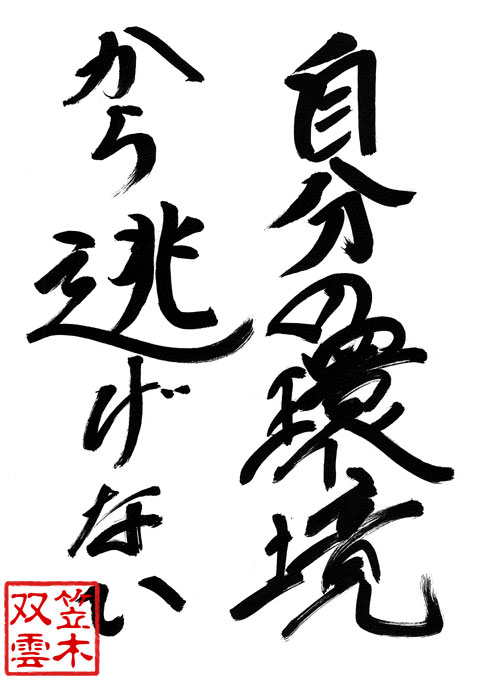 自分の環境
から逃げない
笠木
双雲